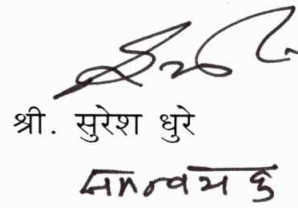 श्री. सुरेश धुरे
समन्वयक